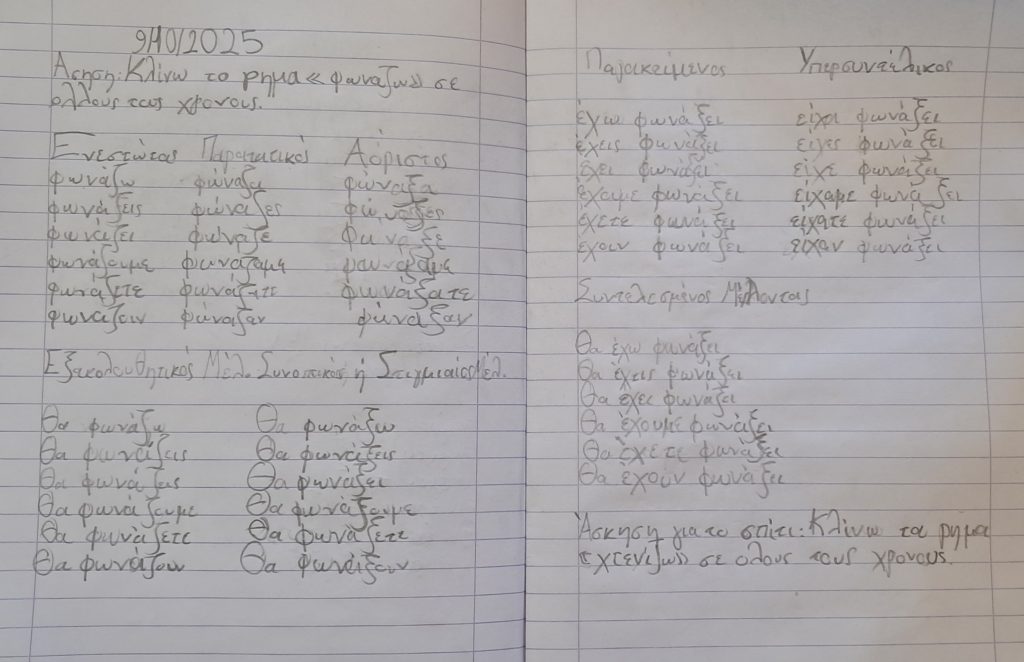 9/10/2025
Άσκηση: Κλίνω το ρημα «φωναζω» σε
ολλους τους χρονους.
Ενεστώτας Παρατατικός Αόριστος
φωνάζω φώναζα φώναξα
φωνάζεις φώναζες φώναξες
φωνάζει φώναζε φώναξε
φωνάζουμε φωνάζαμε φωνάξαμε
φωνάζετε φωνάζατε φωνάξατε
φωνάζουν φώναζαν φώναξαν
Εξακολουθητικός Μέλ. Συνοπτικός ή Στιγμιαίος Μέλ.
Θα φωνάζω Θα φωνάξω
Θα φωνάζεις Θα φωνάξεις
Θα φωνάζεις Θα φωνάξει
Θα φωνάζουμε Θα φωνάξουμε
Θα φωνάζετε Θα φωνάξετε
Θα φωνάζουν Θα φωνάξουν
Παρακείμενος Υπερσυντέλικος
έχω φωνάξει είχα φωνάξει
έχεις φωνάξει είχες φωνάξει
έχει φωνάξει είχε φωνάξει
έχουμε φωνάξει είχαμε φωνάξει
έχετε φωνάξει είχατε φωνάξει
έχουν φωνάξει είχαν φωνάξει
Συντελεσμένος Μέλλοντας
Θα έχω φωνάξει
Θα έχεις φωνάξει
Θα έχει φωνάξει
Θα έχουμε φωνάξει
Θα έχετε φωνάξει
Θα έχουν φωνάξει
Άσκηση για το σπίτι: Κλίνω το ρημα
«χτενιζω» σε ολους τους χρονους.